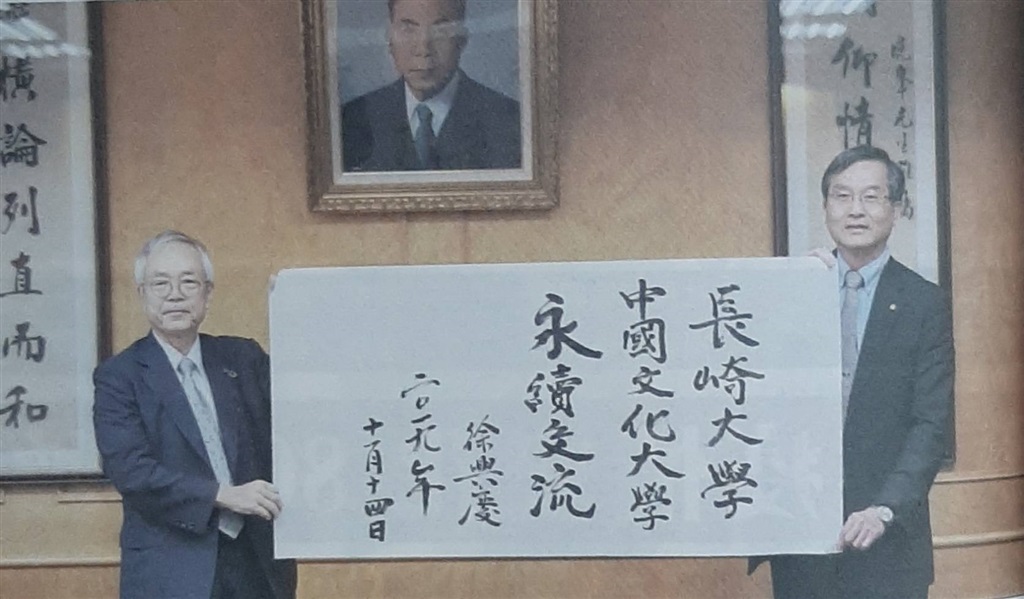 仰情
長崎大學
中國文化大學
永續交流
徐興慶
二〇一九年
十月十四日
橫論列直而和